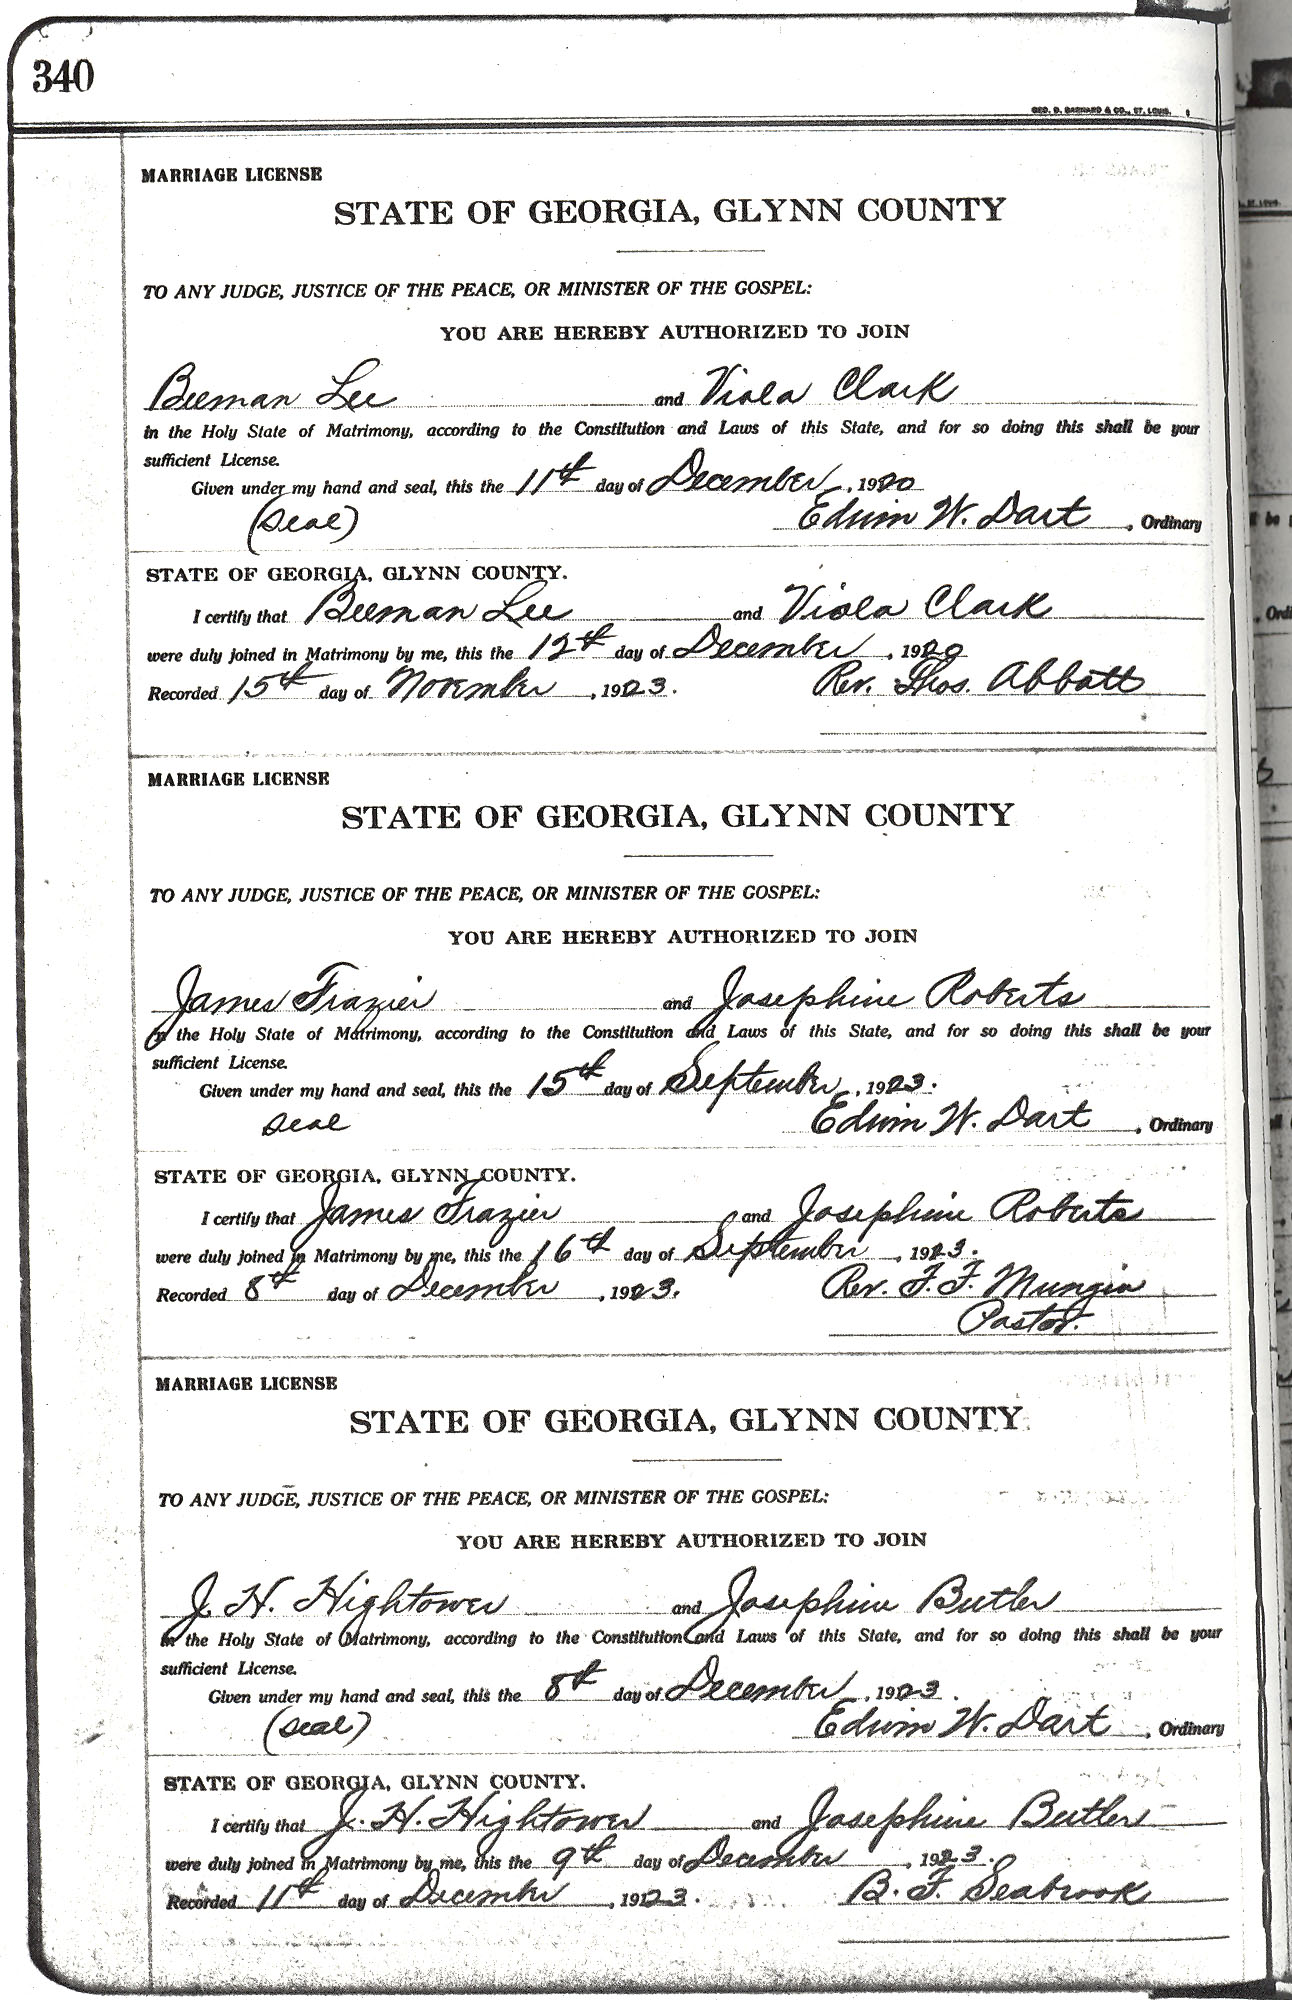 340
GEO. D. BARNARD & CO., ST. LOUIS.
MARRIAGE LICENSE
STATE OF GEORGIA, GLYNN COUNTY
TO ANY JUDGE, JUSTICE OF THE PEACE, OR MINISTER OF THE GOSPEL:
YOU ARE HEREBY AUTHORIZED TO JOIN
Beeman Lee and Viola Clark
in the Holy State of Matrimony, according to the Constitution and Laws of this State, and for so doing this shall be your
sufficient License.
Given under my hand and seal, this the 11th day of December, 1920
(seal) Edwin W. Dart, Ordinary
STATE OF GEORGIA, GLYNN COUNTY.
I certify that Beeman Lee and Viola Clark
were duly joined in Matrimony by me, this the 12th day of December, 1920
Recorded 15th day of November, 1923. Rev. Thos. Abbott
MARRIAGE LICENSE
STATE OF GEORGIA, GLYNN COUNTY
TO ANY JUDGE, JUSTICE OF THE PEACE, OR MINISTER OF THE GOSPEL:
YOU ARE HEREBY AUTHORIZED TO JOIN
James Frazier and Josephine Roberts
in the Holy State of Matrimony, according to the Constitution and Laws of this State, and for so doing this shall be your
sufficient License.
Given under my hand and seal, this the 15th day of September, 1923.
seal Edwin W. Dart, Ordinary
STATE OF GEORGIA, GLYNN COUNTY.
I certify that James Frazier and Josephine Roberts
were duly joined in Matrimony by me, this the 16th day of September, 1923.
Recorded 8th day of December, 1923. Rev. F. F. Mungin
Pastor.
MARRIAGE LICENSE
STATE OF GEORGIA, GLYNN COUNTY
TO ANY JUDGE, JUSTICE OF THE PEACE, OR MINISTER OF THE GOSPEL:
YOU ARE HEREBY AUTHORIZED TO JOIN
J. H. Hightower and Josephine Butler
in the Holy State of Matrimony, according to the Constitution and Laws of this State, and for so doing this shall be your
sufficient License.
Given under my hand and seal, this the 8th day of December, 1923.
(seal) Edwin W. Dart, Ordinary
STATE OF GEORGIA, GLYNN COUNTY.
I certify that J. H. Hightower and Josephine Butler
were duly joined in Matrimony by me, this the 9th day of December, 1923.
Recorded 11th day of December, 1923. B. F. Seabrook